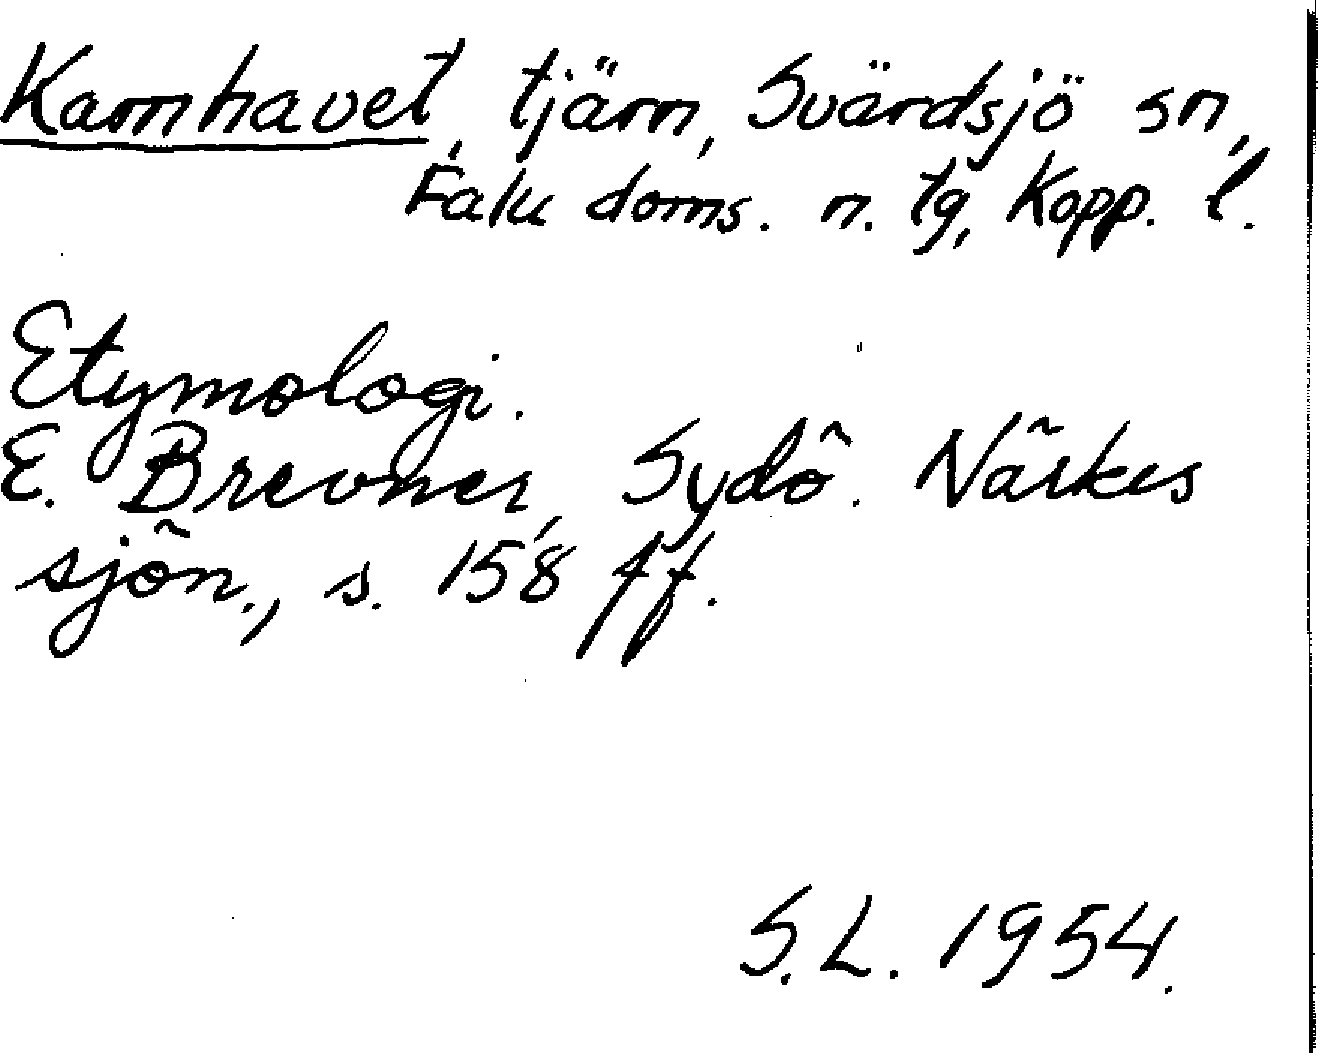 Karnhavet, tjärn, Svärdsjö sn,
Falu doms. n. tg, Kopp. l.
Etymologi.
E. Brevner, Sydö. Närkes
sjön., s. 158 ff.
S.L. 1954.